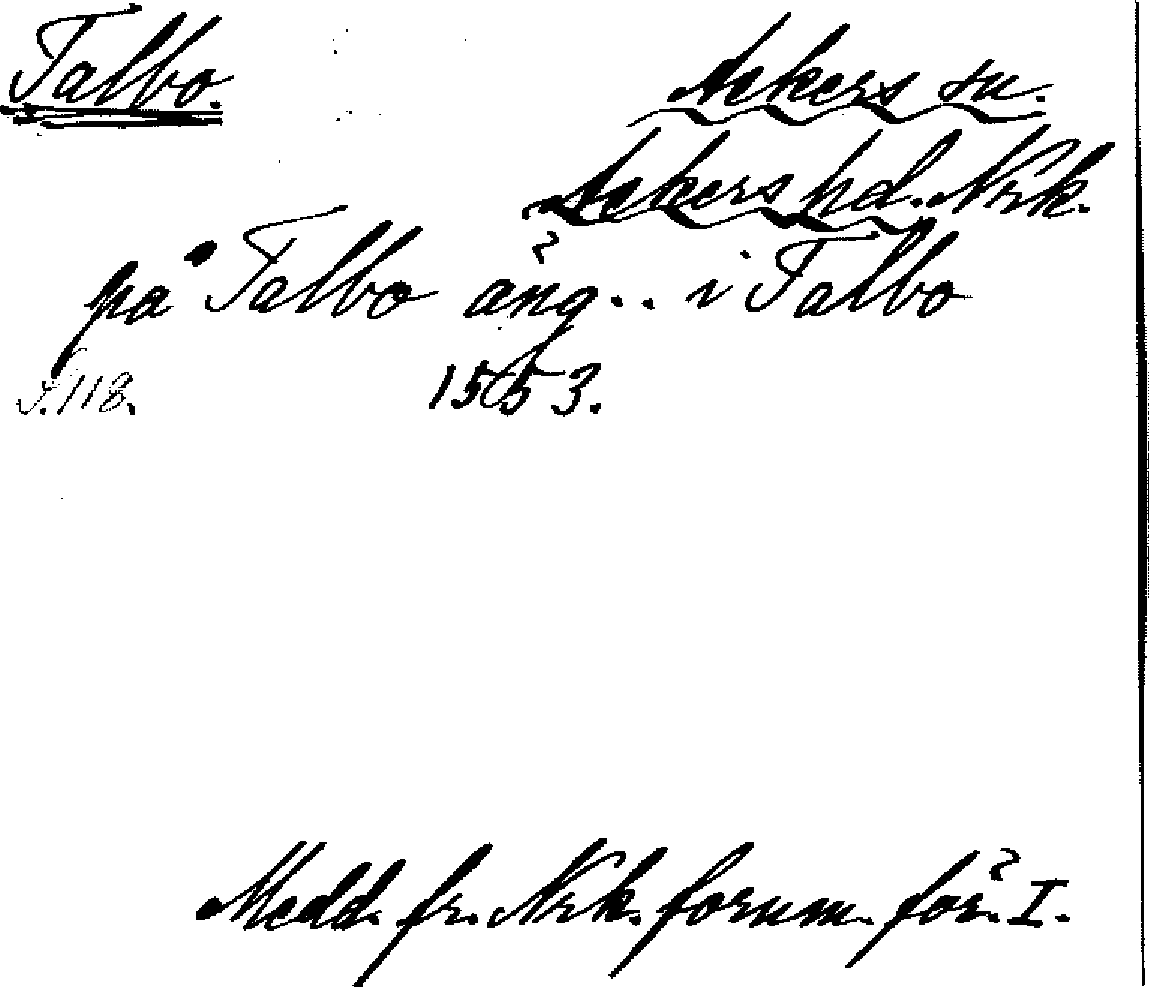 Talbo.
Askers sn.
Askers hd. Nrk.
på Talbo äng.. i Talbo
s. 118. 1553.
Medd. fr. Nrk. fornm. för. I.